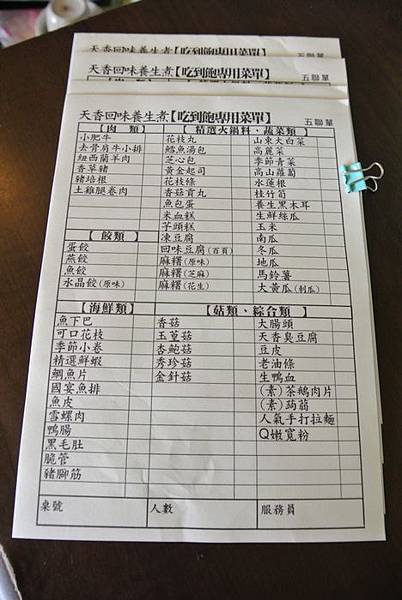 天香回味養生煮【吃到飽專用菜單】
五聯單
天香回味養生煮【吃到飽專用菜單】
五聯單
天香回味養生煮【吃到飽專用菜單】
五聯單
【肉類】
小肥牛
去骨肩牛小排
紐西蘭羊肉
香草豬
豬培根
土雞腿卷肉
【餃類】
蛋餃
燕餃
魚餃
水晶餃(原味)
【精選火鍋料、蔬菜類】
花枝丸
鱈魚湯包
芝心包
黃金起司
花枝條
香菇貢丸
魚包蛋
米血糕
芋頭糕
凍豆腐
回味豆腐(百頁)
麻糬(原味)
麻糬(芝麻)
麻糬(花生)
山東大白菜
高麗菜
季節青菜
高山蘿蔔
水蓮根
桂竹筍
養生黑木耳
生鮮絲瓜
玉米
南瓜
冬瓜
地瓜
馬鈴薯
大黃瓜(刺瓜)
【海鮮類】
魚下巴
可口花枝
季節小卷
精選鮮蝦
鯛魚片
國宴魚排
魚皮
雪螺肉
鴨腸
黑毛肚
脆管
豬腳筋
【菇類、綜合類】
香菇
玉蕈菇
杏鮑菇
秀珍菇
金針菇
大腸頭
天香臭豆腐
豆皮
老油條
生鴨血
(素)茶鵝肉片
(素)蒟蒻
人氣手打拉麵
Q嫩寬粉
桌號
人數
服務員